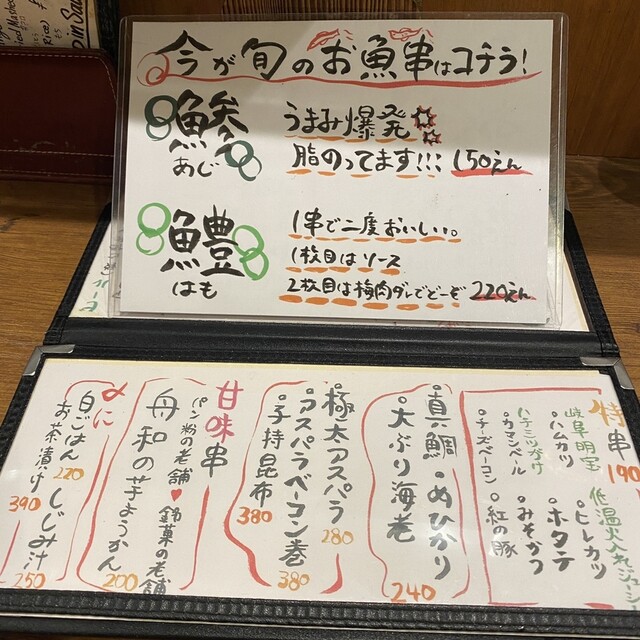 今が旬のお魚串はコチラ!
鯵
あじ
うまみ爆発
脂のってます!!! 150えん
鱧
はも
1串で二度おいしい。
1枚目はソース
2枚目は梅肉ダレでどーぞ 220えん
特串 190
岐阜明宝 低温火入れジューシー
・ハムカツ ・ヒレカツ
ハチミツがけ ・ホタテ
・カマンベール ・みそかつ
・チーズベーコン ・紅の豚
・真鯛 ・めひかり
・大ぶり海老 240
・極太アスパラ 280
・アスパラベーコン巻 380
・子持昆布 380
甘味串
パン粉の老舗♥銘菓の老舗
舟和の芋ようかん 200
〆に
白ごはん 220 しじみ汁 250
お茶漬け 390